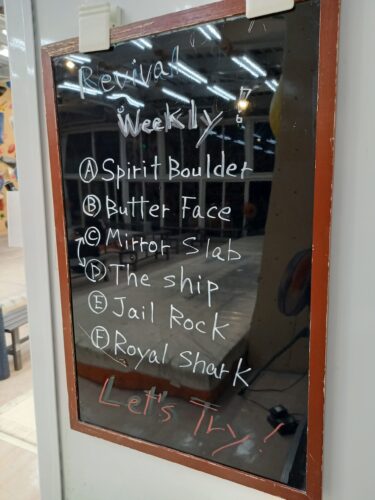 Revival
Weekly!
Ⓐ Spirit Boulder
Ⓑ Butter Face
Ⓒ Mirror Slab
Ⓓ The ship
Ⓔ Jail Rock
Ⓕ Royal Shark
Let's Try!